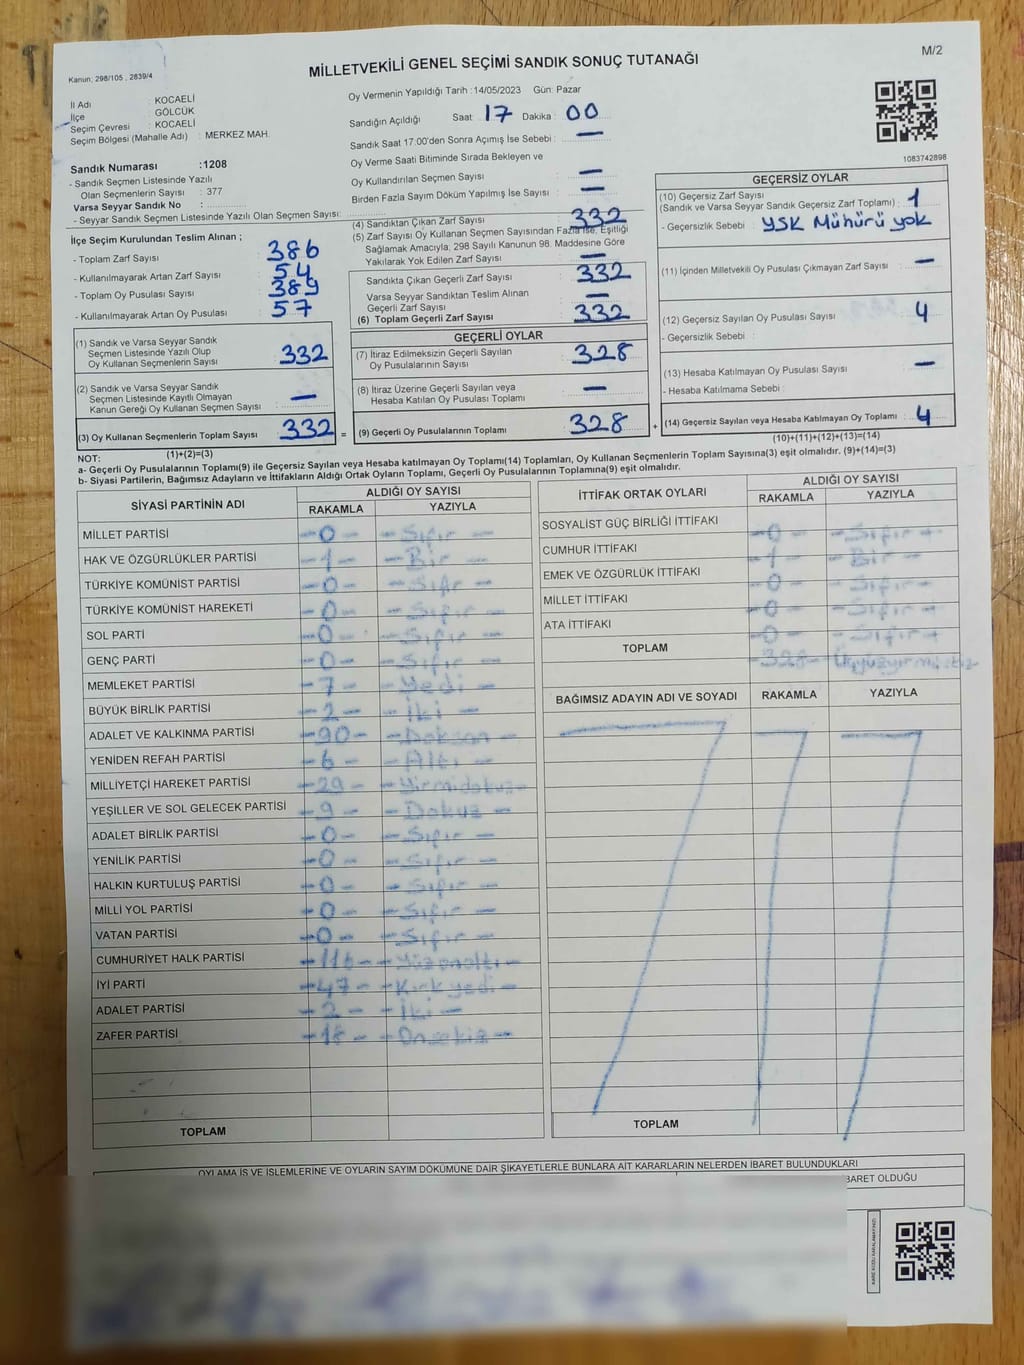 M/2
Kanun; 298/105 , 2839/4
MİLLETVEKİLİ GENEL SEÇİMİ SANDIK SONUÇ TUTANAĞI
İl Adı : KOCAELİ
İlçe : GÖLCÜK
Seçim Çevresi : KOCAELİ
Seçim Bölgesi (Mahalle Adı) : MERKEZ MAH.
Sandık Numarası :1208
- Sandık Seçmen Listesinde Yazılı
Olan Seçmenlerin Sayısı : 377
Varsa Seyyar Sandık No :
- Seyyar Sandık Seçmen Listesinde Yazılı Olan Seçmen Sayısı:
Oy Vermenin Yapıldığı Tarih :14/05/2023 Gün: Pazar
Sandığın Açıldığı Saat : 17 Dakika : 00
Sandık Saat 17.00'den Sonra Açımış İse Sebebi : —
Oy Verme Saati Bitiminde Sırada Bekleyen ve
Oy Kullandırılan Seçmen Sayısı : —
Birden Fazla Sayım Döküm Yapılmış İse Sayısı : —
1083742898
İlçe Seçim Kurulundan Teslim Alınan ;
- Toplam Zarf Sayısı : 386
- Kullanılmayarak Artan Zarf Sayısı : 54
- Toplam Oy Pusulası Sayısı : 389
- Kullanılmayarak Artan Oy Pusulası : 57
(1) Sandık ve Varsa Seyyar Sandık
Seçmen Listesinde Yazılı Olup
Oy Kullanan Seçmenlerin Sayısı : 332
(2) Sandık ve Varsa Seyyar Sandık
Seçmen Listesinde Kayıtlı Olmayan
Kanun Gereği Oy Kullanan Seçmen Sayısı : —
(3) Oy Kullanan Seçmenlerin Toplam Sayısı : 332 =
(1)+(2)=(3)
(4) Sandıktan Çıkan Zarf Sayısı : 332
(5) Zarf Sayısı Oy Kullanan Seçmen Sayısından Fazla İse, Eşitliği
Sağlamak Amacıyla; 298 Sayılı Kanunun 98. Maddesine Göre
Yakılarak Yok Edilen Zarf Sayısı : —
Sandıkta Çıkan Geçerli Zarf Sayısı : 332
Varsa Seyyar Sandıktan Teslim Alınan
Geçerli Zarf Sayısı : —
(6) Toplam Geçerli Zarf Sayısı : 332
GEÇERLİ OYLAR
(7) İtiraz Edilmeksizin Geçerli Sayılan
Oy Pusulalarının Sayısı : 328
(8) İtiraz Üzerine Geçerli Sayılan veya
Hesaba Katılan Oy Pusulası Toplamı : —
(9) Geçerli Oy Pusulalarının Toplamı : 328 +
GEÇERSİZ OYLAR
(10) Geçersiz Zarf Sayısı
(Sandık ve Varsa Seyyar Sandık Geçersiz Zarf Toplamı) : 1
- Geçersizlik Sebebi : YSK Mühürü yok
(11) İçinden Milletvekili Oy Pusulası Çıkmayan Zarf Sayısı : —
(12) Geçersiz Sayılan Oy Pusulası Sayısı : 4
- Geçersizlik Sebebi :
(13) Hesaba Katılmayan Oy Pusulası Sayısı : —
- Hesaba Katılmama Sebebi :
(14) Geçersiz Sayılan veya Hesaba Katılmayan Oy Toplamı : 4
(10)+(11)+(12)+(13)=(14)
NOT:
a- Geçerli Oy Pusulalarının Toplamı(9) ile Geçersiz Sayılan veya Hesaba katılmayan Oy Toplamı(14) Toplamları, Oy Kullanan Seçmenlerin Toplam Sayısına(3) eşit olmalıdır. (9)+(14)=(3)
b- Siyasi Partilerin, Bağımsız Adayların ve İttifakların Aldığı Ortak Oyların Toplamı, Geçerli Oy Pusulalarının Toplamına(9) eşit olmalıdır.
SİYASİ PARTİNİN ADI ALDIĞI OY SAYISI
RAKAMLA YAZIYLA
MİLLET PARTİSİ -0- -Sıfır-
HAK VE ÖZGÜRLÜKLER PARTİSİ -1- -Bir-
TÜRKİYE KOMÜNİST PARTİSİ -0- -Sıfr-
TÜRKİYE KOMÜNİST HAREKETİ -0- -Sıfır-
SOL PARTİ -0- -Sıfır-
GENÇ PARTİ -0- -Sıfır-
MEMLEKET PARTİSİ -7- -Yedi-
BÜYÜK BİRLİK PARTİSİ -2- -İki-
ADALET VE KALKINMA PARTİSİ -90- -Doksan-
YENİDEN REFAH PARTİSİ -6- -Altı-
MİLLİYETÇİ HAREKET PARTİSİ -29- -Yirmidokuz-
YEŞİLLER VE SOL GELECEK PARTİSİ -9- -Dokuz-
ADALET BİRLİK PARTİSİ -0- -Sıfır-
YENİLİK PARTİSİ -0- -Sıfır-
HALKIN KURTULUŞ PARTİSİ -0- -Sıfır-
MİLLİ YOL PARTİSİ -0- -Sıfır-
VATAN PARTİSİ -0- -Sıfır-
CUMHURİYET HALK PARTİSİ -116- -Yüzonaltı-
İYİ PARTİ -47- -Kırkyedi-
ADALET PARTİSİ -2- -İki-
ZAFER PARTİSİ -18- -Onsekiz-
TOPLAM
İTTİFAK ORTAK OYLARI ALDIĞI OY SAYISI
RAKAMLA YAZIYLA
SOSYALİST GÜÇ BİRLİĞİ İTTİFAKI -0- -Sıfır-
CUMHUR İTTİFAKI -1- -Bir-
EMEK VE ÖZGÜRLÜK İTTİFAKI -0- -Sıfır-
MİLLET İTTİFAKI -0- -Sıfır-
ATA İTTİFAKI -0- -Sıfır-
TOPLAM -328- Üçyüzyirmisekiz
BAĞIMSIZ ADAYIN ADI VE SOYADI RAKAMLA YAZIYLA
TOPLAM
OYLAMA İŞ VE İŞLEMLERİNE VE OYLARIN SAYIM DÖKÜMÜNE DAİR ŞİKAYETLERLE BUNLARA AİT KARARLARIN NELERDEN İBARET BULUNDUKLARI
BARET OLDUĞU